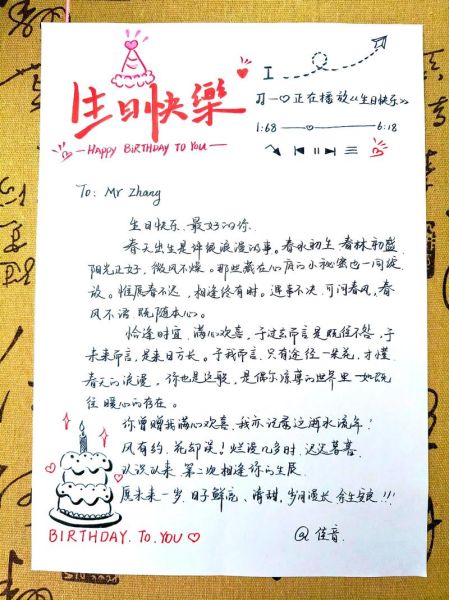 生日快樂
HAPPY BIRTHDAY TO YOU
正在播放《生日快乐》
1:68 6:18
To: Mr Zhang
生日快乐 最好的你
春天出生是件很浪漫的事。春水初生 春林初盛
阳光正好，微风不燥。那些藏在心底的小秘密也一同绽
放。惟愿春不迟，相逢终有时。遇事不决，可问春风，春
风不语 既随本心。
恰逢时宜，满心欢喜，于过去而言是既往不咎，于
未来而言，是来日方长。于我而言，只有途径一朵花，才懂
春天的浪漫，你也是这般，是偶尔凉薄的世界里一如既
往 暖心的存在。
你曾赠我满心欢喜，我亦记居这海水流年！
风有约，花却误！烂漫几多时，迟迟暮暮
认识以来，第二次相逢你的生辰
愿未来一岁，日子鲜活、清甜，岁月漫长 余生安良！！！
@ 佳音
BIRTHDAY. TO. YOU